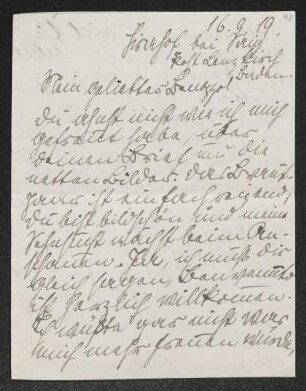 16. 9. 19.
42
bei
Post Lenzkirch
Baden.
Mein geliebter
du ahnst nicht wie ich mich
gefreut habe, über
deinen Brief und die
netten Bilder. das Braut-
paar ist einfach reizend,
du bist bildschön und meine
Sehnsucht wächst beim An-
schauen. Ja, ich muß dir
gleich sagen,
ist herzlich willkommen.
wüßte gar nicht wer
mich mehr freuen würde,